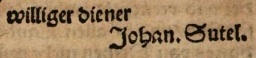 williger diener
Johan. Sutel.